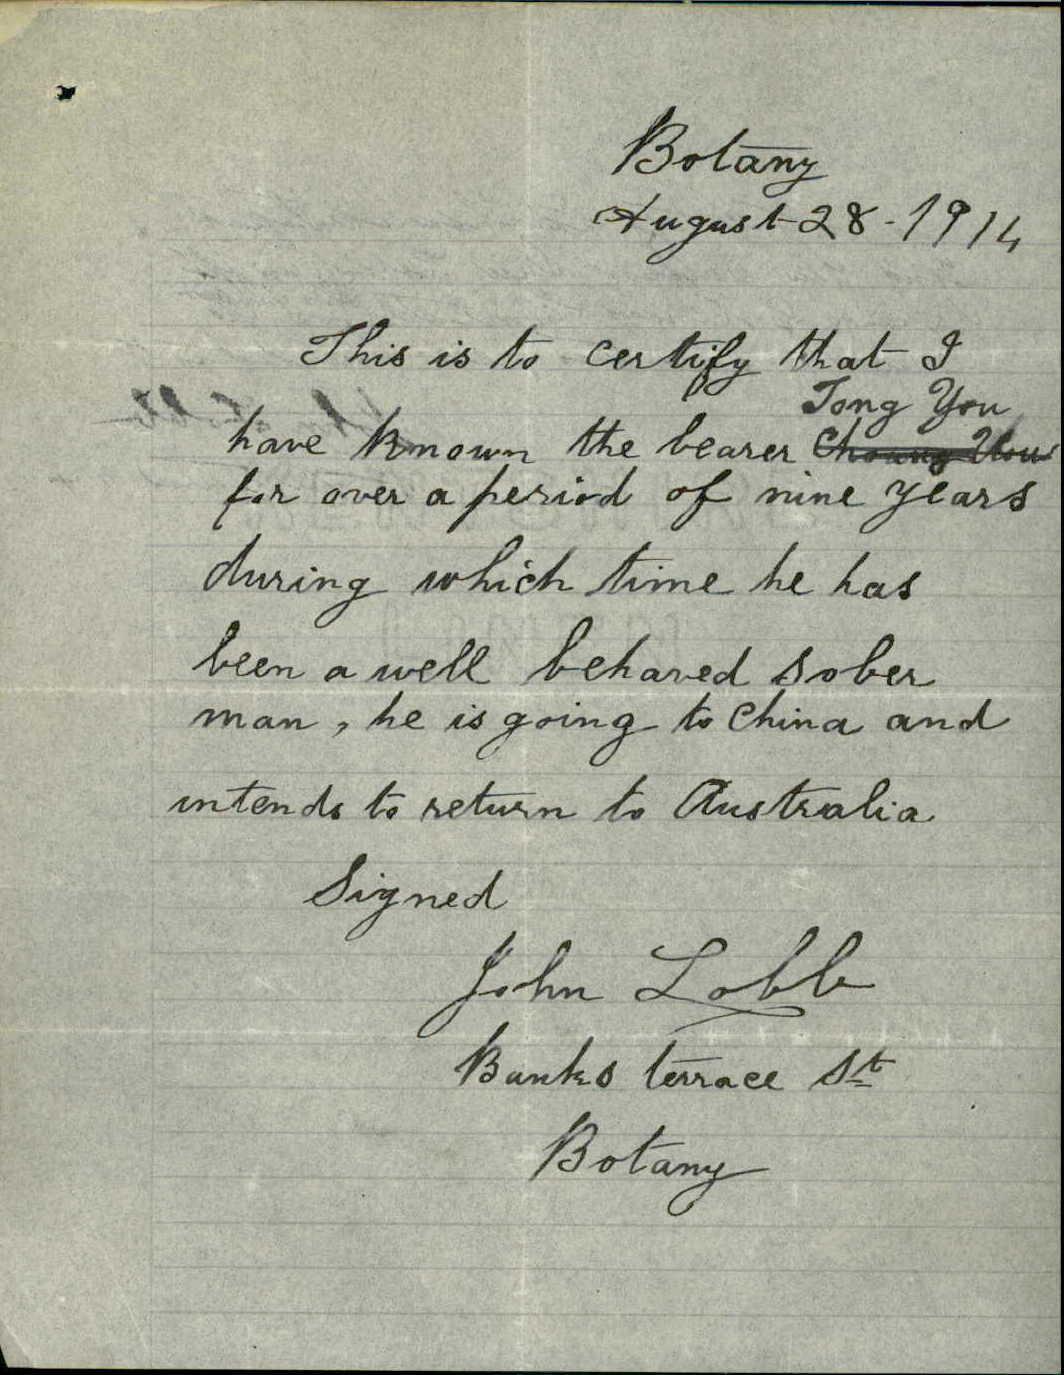 Botany
August 28 - 1914
This is to certify that I
Tong You
have known the bearer
for over a period of nine years
during which time he has
been a well behaved sober
man, he is going to China and
intends to return to Australia
Signed
John Lobb
Banks terrace St
Botany